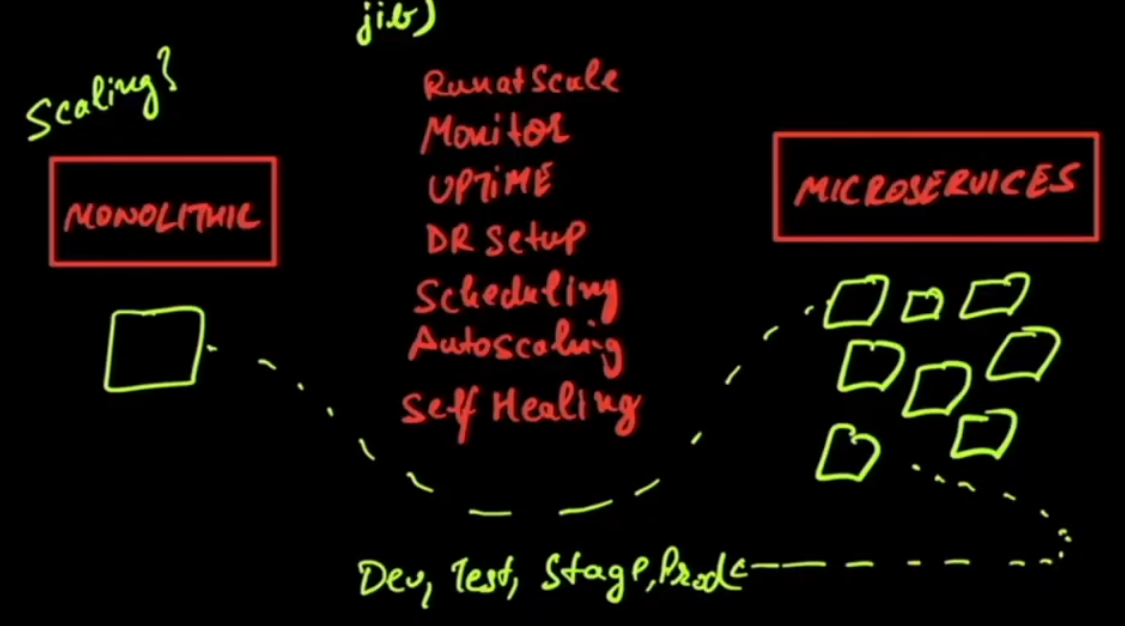 jib)
Scaling?
Run at Scale
Monitor
UPTiME
DR Setup
Scheduling
Autoscaling
Self Healing
MONOLITHIC
MICROSERVICES
Dev, Test, Stage, Prod